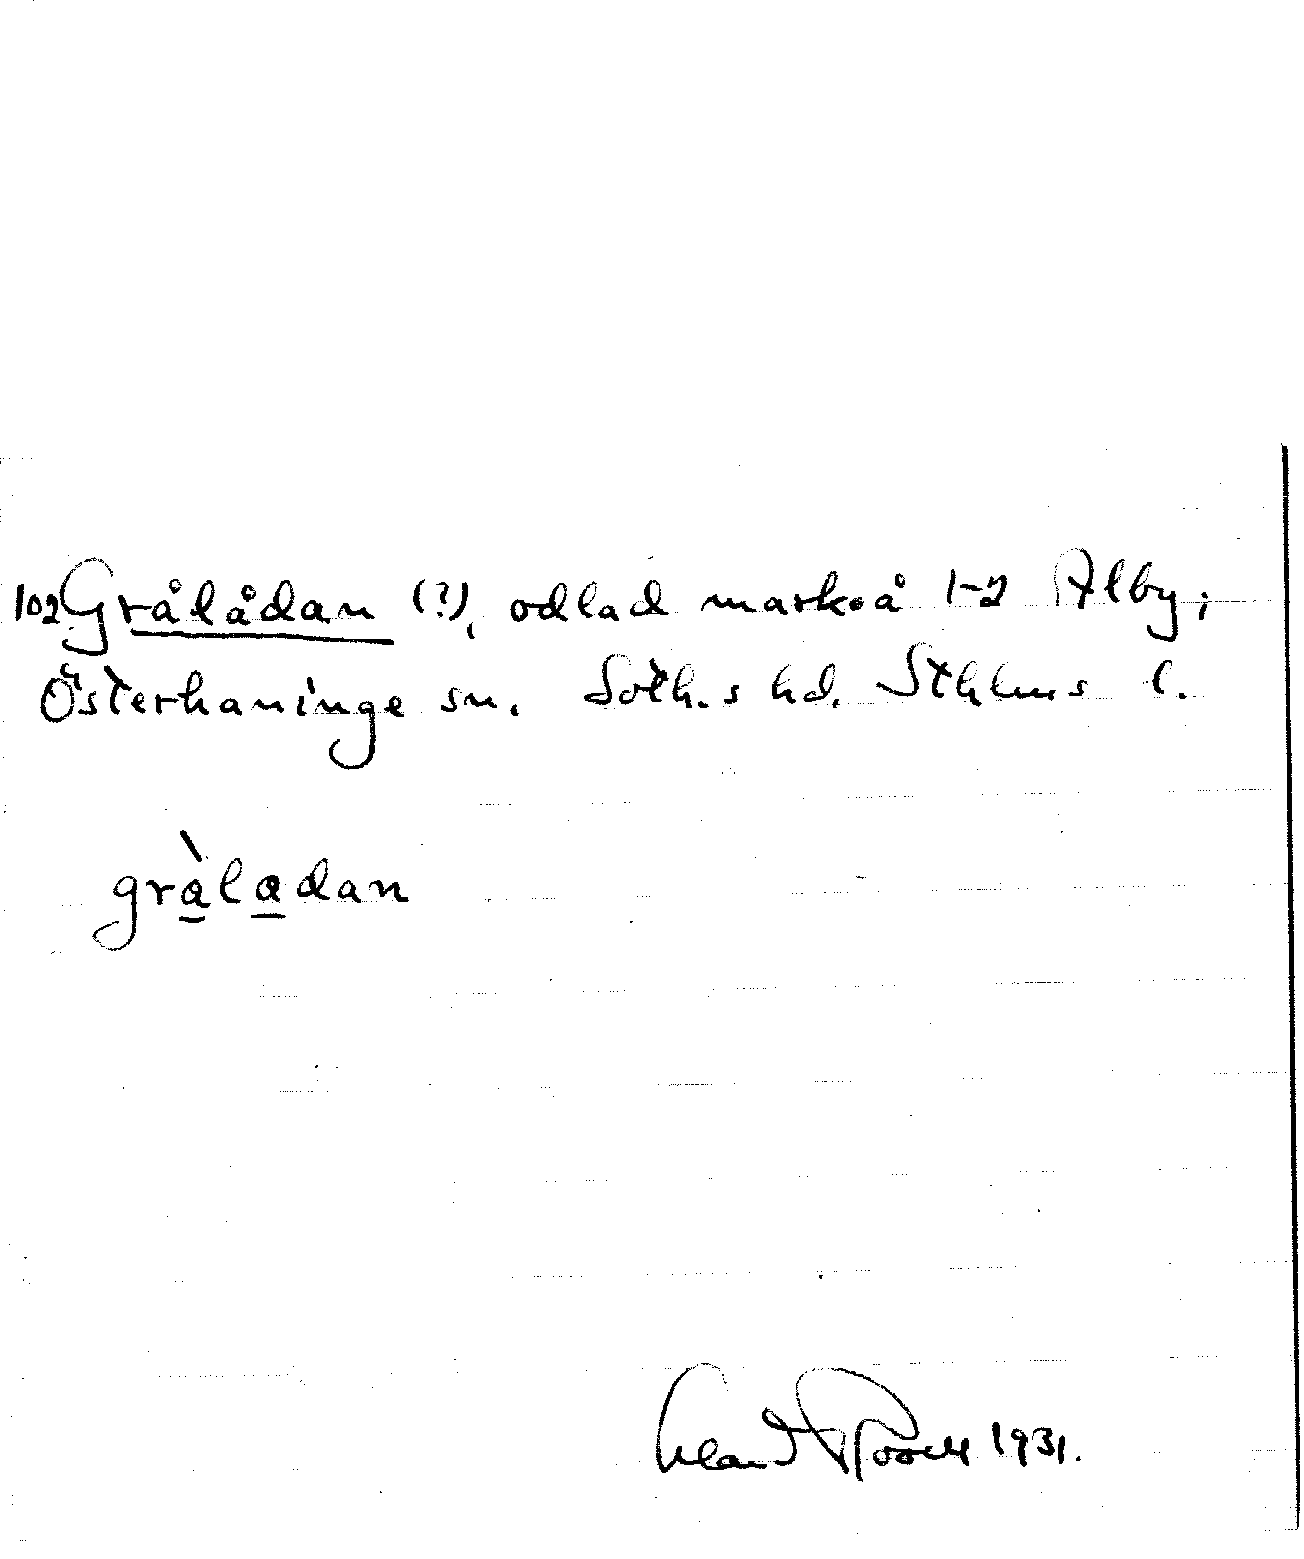 102 Grålådan (?), odlad mark å 1-2 Älby;
Österhaninge sn. Soth.s hd. Sthlms l.
gràladan
1931.